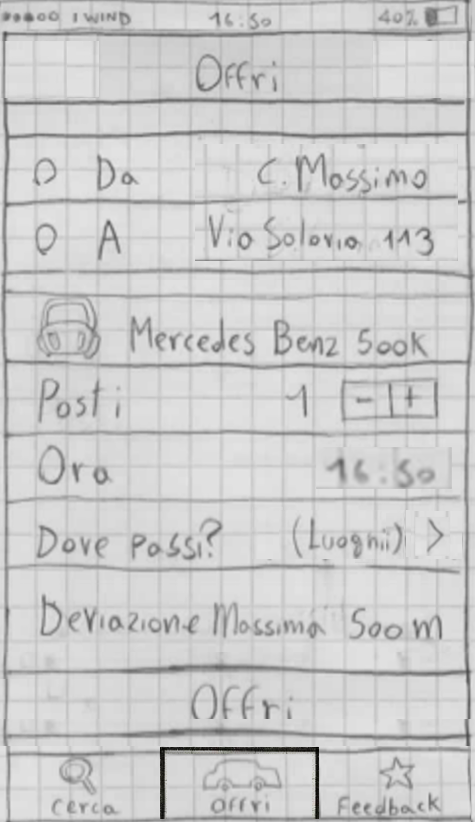 I WIND 16:50 40%
Offri
Da C. Massimo
A Via Salaria 113
Mercedes Benz 500K
Posti 1 - +
Ora 16:50
Dove passi? (Luoghi) >
Deviazione Massima 500 m
Offri
Cerca Offri Feedback